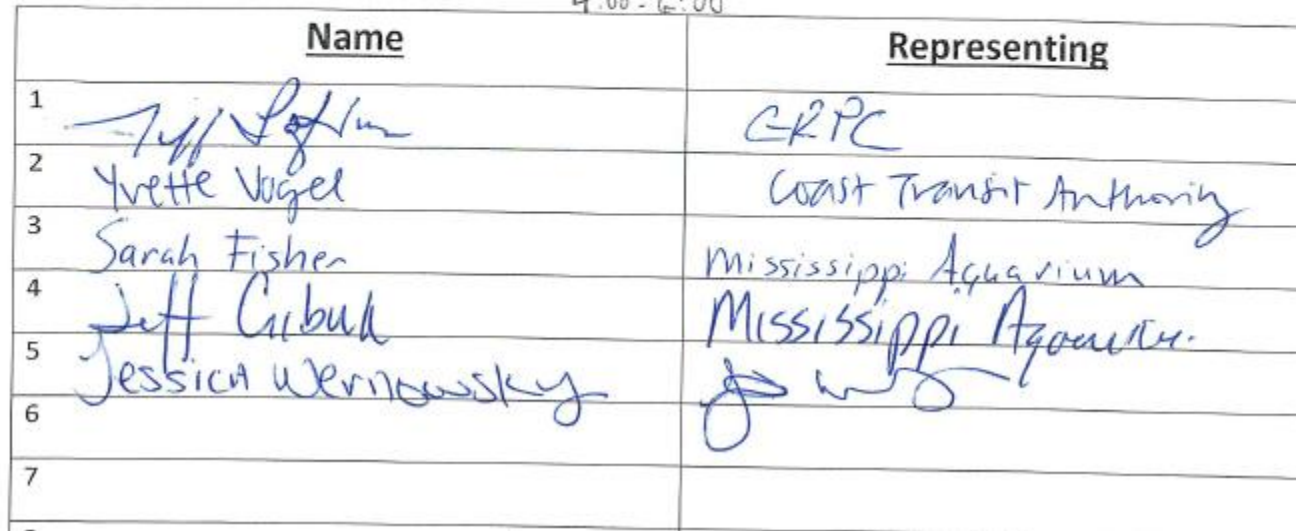 4:00 - 6:00
Name Representing
1 Jeff Loftus GRPC
2 Yvette Vogel Coast Transit Authority
3 Sarah Fisher Mississippi Aquarium
4 Jeff Mississippi
5 Jessica Wernowsky
6
7